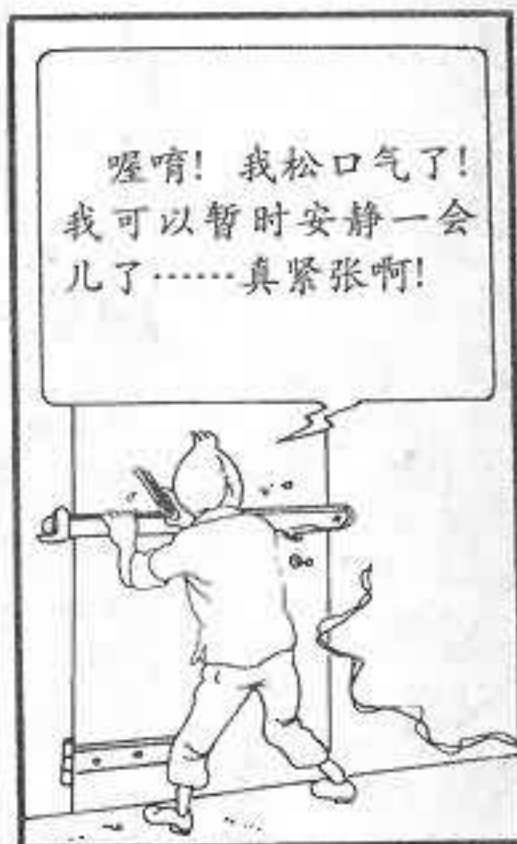 喔唷！我松口气了！
我可以暂时安静一会
儿了……真紧张啊！